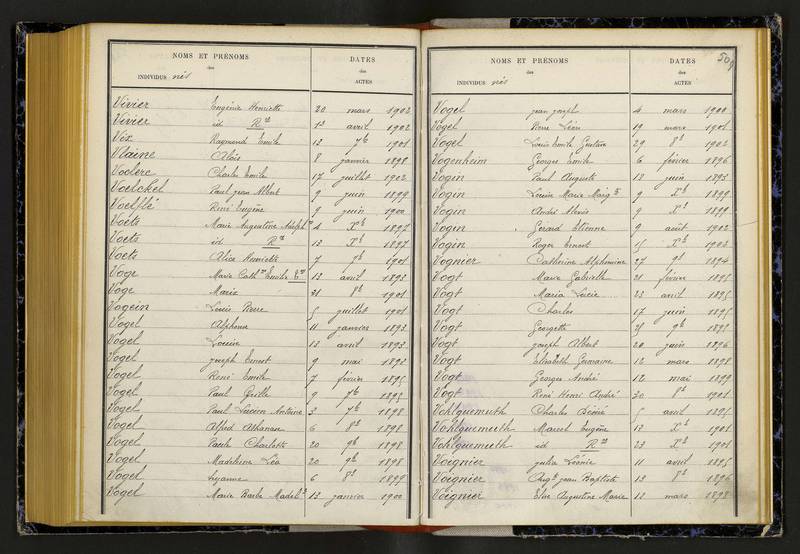 NOMS ET PRÉNOMS DATES
des des
INDIVIDUS nés ACTES
Vivier Eugénie Henriette 20 mars 1902
Vivier id Ron 13 avril 1902
Vix Raymond Emile 13 7b 1901
Vlaine Aloïs 8 janvier 1898
Voclerc Charles Emile 17 juillet 1902
Voelckel Paul Jean Albert 9 juin 1899
Voelflé René Eugène 9 juin 1900
Voets Marie Augustine Adolph 4 Xb 1897
Voets id Ron 13 Xb 1897
Voets Alice Henriette 7 9b 1901
Voge Marie Cath Emilie 13 avril 1893
Voge Marie 31 8b 1901
Vogein Louis Pierre 5 juillet 1901
Vogel Alphonse 11 janvier 1893
Vogel Louise 13 avril 1893
Vogel Joseph Ernest 9 mai 1895
Vogel René Emile 7 février 1895
Vogel Paul 9 7b 1895
Vogel Paul Lucien Antoine 3 7b 1898
Vogel Alfred Athanase 6 8b 1898
Vogel Paule Charlotte 20 9b 1898
Vogel Madeleine Léa 20 9b 1898
Vogel Suzanne 6 8b 1899
Vogel Marie Barbe Madel 13 janvier 1900
509
NOMS ET PRÉNOMS DATES
des des
INDIVIDUS nés ACTES
Vogel Jean Joseph 4 mars 1900
Vogel Pierre Léon 19 mars 1901
Vogel Louis Emile Gustave 29 8b 1902
Vogenheim Georges Emile 6 février 1896
Vogin Paul Auguste 12 juin 1893
Vogin Louise Marie Marg 9 Xb 1899
Vogin André Alexis 9 Xb 1899
Vogin Gérard Etienne 9 août 1902
Vogin Roger Ernest 15 Xb 1902
Vognier Catherine Alphonsine 27 9b 1894
Vogt Marie Gabrielle 21 février 1895
Vogt Maria Lucie 23 avril 1895
Vogt Charles 17 juin 1895
Vogt Georgette 25 9b 1895
Vogt Joseph Albert 20 juin 1896
Vogt Elisabeth Germaine 12 mars 1898
Vogt Georges André 12 mai 1899
Vogt René Henri André 30 8b 1901
Vohlguemuth Charles Désiré 5 avril 1895
Vohlguemuth Marcel Eugène 13 Xb 1901
Vohlguemuth id Ron 23 Xb 1901
Voignier Julia Léonie 11 avril 1895
Voignier Aug Jean Baptiste 13 8b 1896
Voignier Elise Augustine Marie 12 mars 1898